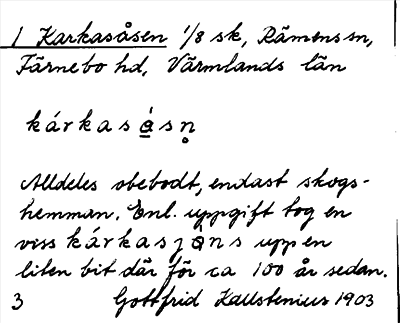 1 Karkasåsen 1/8 sk, Rämens sn,
Färnebo hd, Värmlands län
kárkasåsn̥
Alldeles obebodt, endast skogs-
hemman. Enl. uppgift tog en
viss kárkasjȯns upp en
liten bit där för ca 100 år sedan.
3 Gottfrid Kallstenius 1903